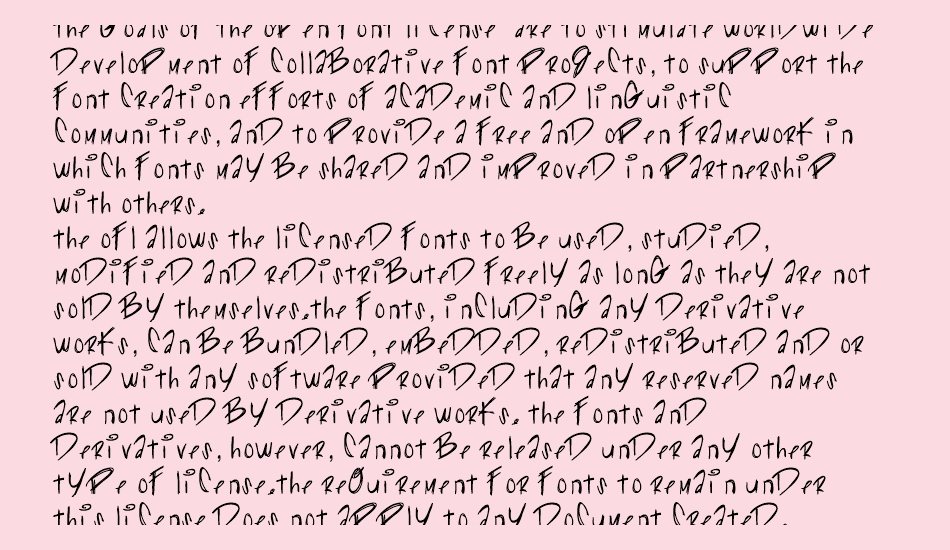 the Goals of the open font license are to stimulate worldwide
Development of collaborative font projects, to support the
font creation efforts of academic and linguistic
communities, and to provide a free and open framework in
which fonts may be shared and improved in partnership
with others.
the ofl allows the licensed fonts to be used, studied,
modified and redistributed freely as long as they are not
sold by themselves.the fonts, including any derivative
works, can be bundled, embedded, redistributed and or
sold with any software provided that any reserved names
are not used by derivative works. the fonts and
Derivatives, however, cannot be released under any other
type of license.the requirement for fonts to remain under
this license does not apply to any document created.